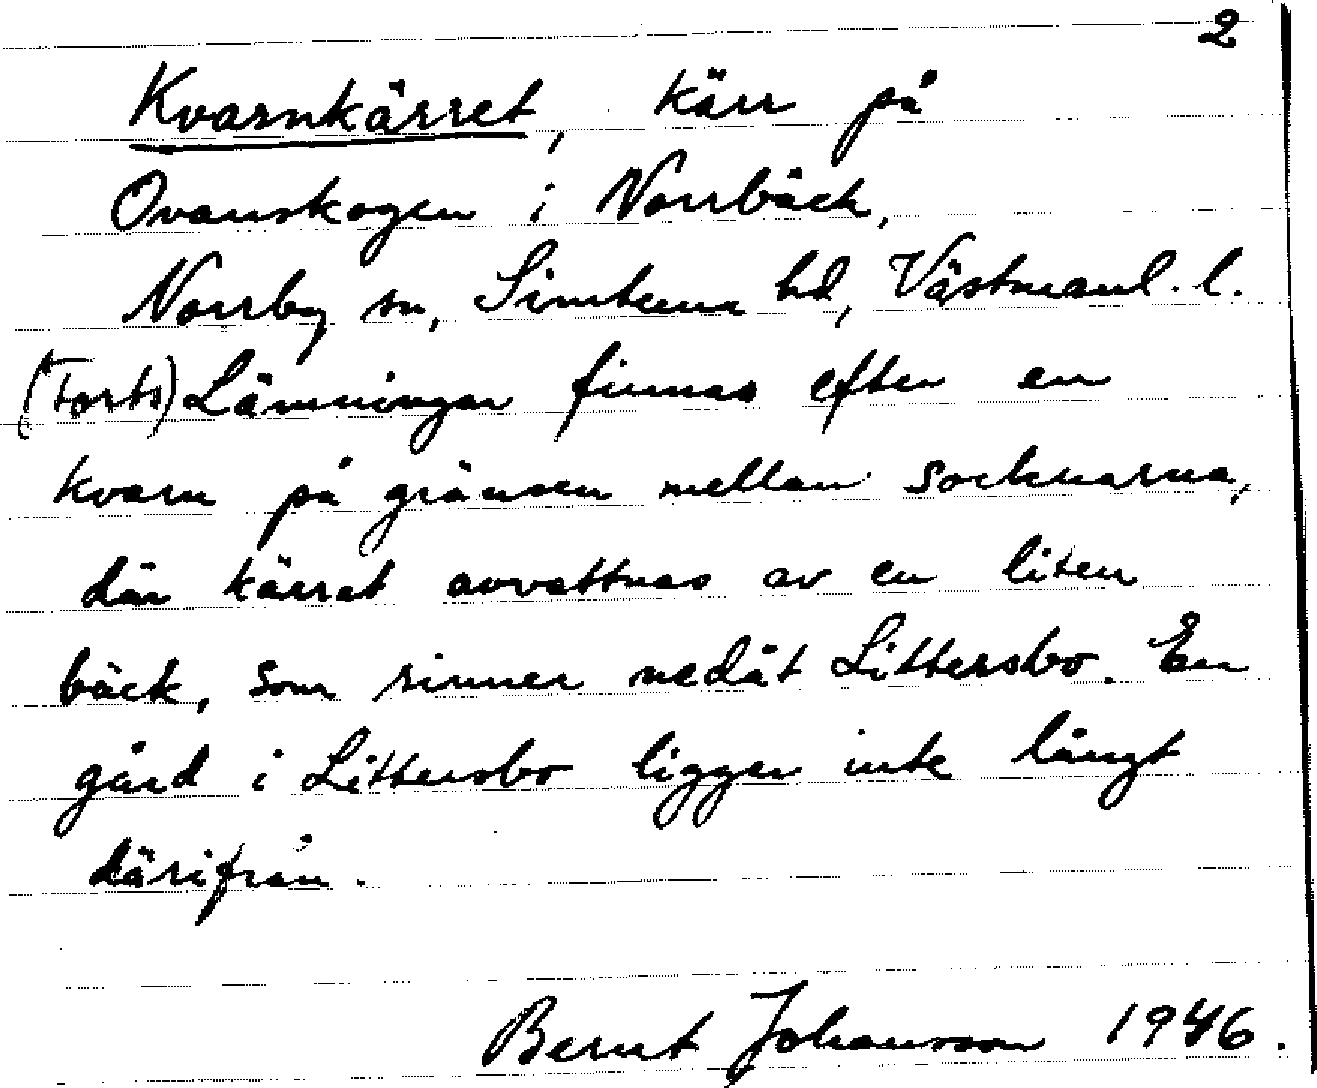 2
Kvarnkärret, kärr på
Ovanskogen i Norrbäck,
Norrby sn, Simtuna hd, Västmanl. l.
(Forts) Lämningar finnas efter en
kvarn på gränsen mellan socknarna,
där kärret avvattnas av en liten
bäck, som rinner nedåt Littersbo. En
gård i Littersbo ligger inte långt
därifrån.
Bernt Johansson 1946.